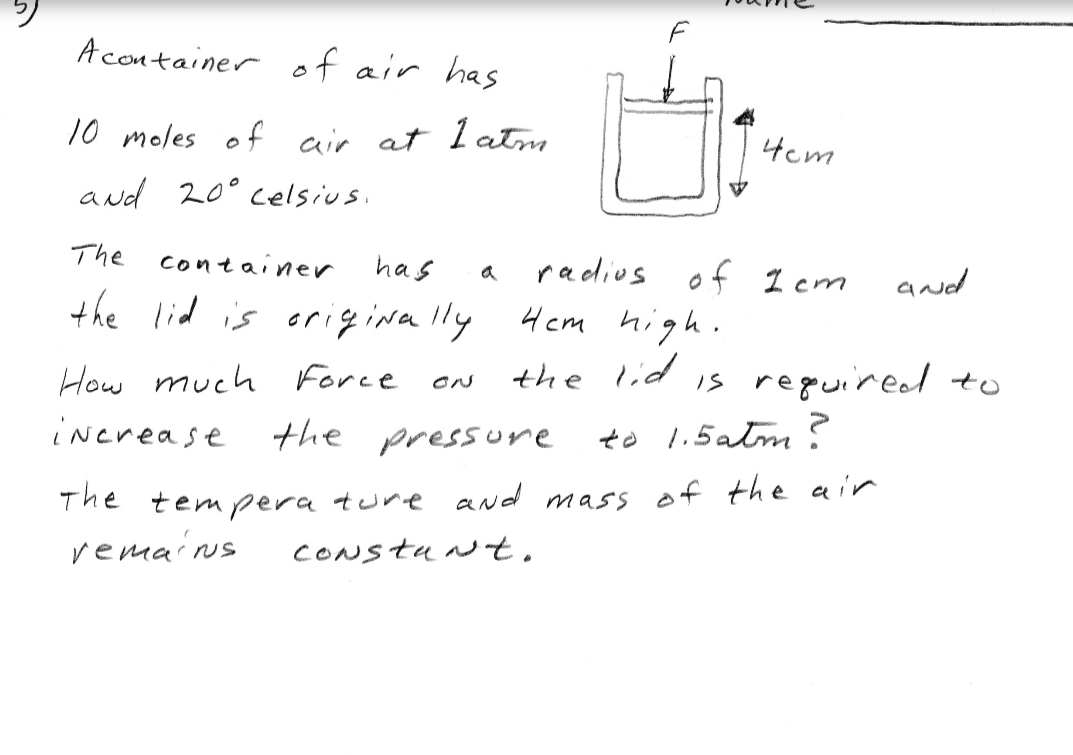 5)
Name
A container of air has
F
10 moles of air at 1 atm
4cm
and 20° celsius.
The container has a radius of 1 cm and
the lid is originally 4cm high.
How much Force on the lid is required to
increase the pressure to 1.5atm?
The temperature and mass of the air
remains constant.